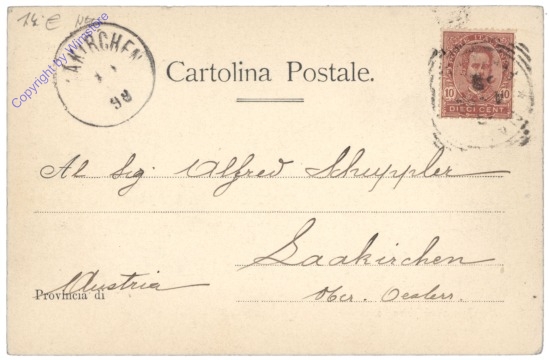 Copyright by Winstore
LAAKIRCHEN
98
Cartolina Postale.
10 10
DIECI CENT
Al Sig. Alfred Schuppler
Laakirchen
Provincia di Austria
Ober. Oesterr.